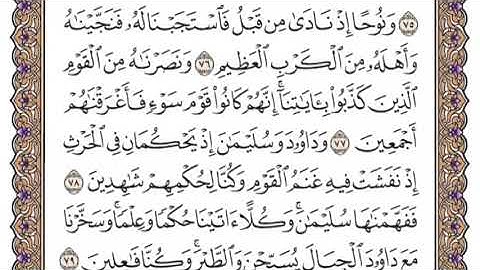 ٧٥ وَنُوحًا إِذْ نَادَىٰ مِن قَبْلُ فَٱسْتَجَبْنَا لَهُۥ فَنَجَّيْنَٰهُ
وَأَهْلَهُۥ مِنَ ٱلْكَرْبِ ٱلْعَظِيمِ ٧٦ وَنَصَرْنَٰهُ مِنَ ٱلْقَوْمِ
ٱلَّذِينَ كَذَّبُوا۟ بِـَٔايَٰتِنَآ ۚ إِنَّهُمْ كَانُوا۟ قَوْمَ سَوْءٍ فَأَغْرَقْنَٰهُمْ
أَجْمَعِينَ ٧٧ وَدَاوُۥدَ وَسُلَيْمَٰنَ إِذْ يَحْكُمَانِ فِى ٱلْحَرْثِ
إِذْ نَفَشَتْ فِيهِ غَنَمُ ٱلْقَوْمِ وَكُنَّا لِحُكْمِهِمْ شَٰهِدِينَ ٧٨
فَفَهَّمْنَٰهَا سُلَيْمَٰنَ ۚ وَكُلًّا ءَاتَيْنَا حُكْمًا وَعِلْمًا ۚ وَسَخَّرْنَا
مَعَ دَاوُۥدَ ٱلْجِبَالَ يُسَبِّحْنَ وَٱلطَّيْرَ ۚ وَكُنَّا فَٰعِلِينَ ٧٩